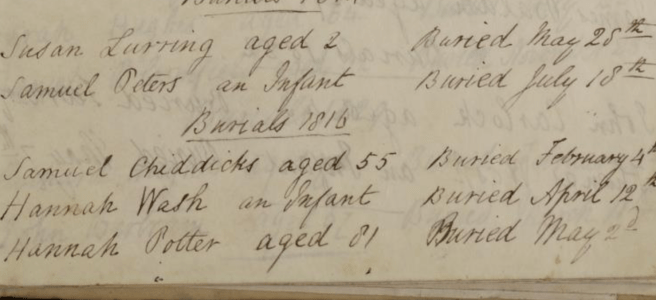 Burials
Susan Lurring aged 2 Buried May 28th
Samuel Peters an Infant Buried July 18th
Burials 1816
Samuel Cheddicks aged 55 Buried February 4th
Hannah Wash an Infant Buried April 12th
Hannah Potter aged 81 Buried May 2d